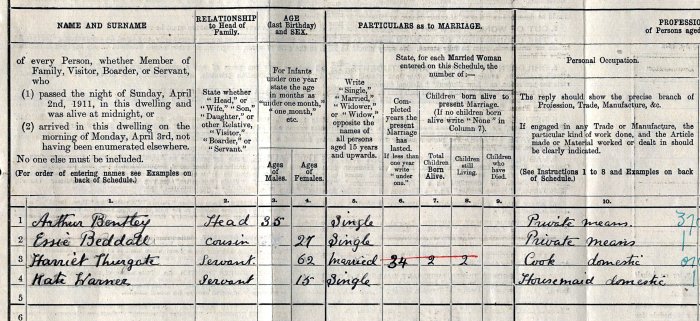 NAME AND SURNAME
RELATIONSHIP to Head of Family.
AGE (last Birthday) and SEX.
PARTICULARS as to MARRIAGE.
PROFESSIO
of Persons aged
of every Person, whether Member of
Family, Visitor, Boarder, or Servant,
who
(1) passed the night of Sunday, April
2nd, 1911, in this dwelling and
was alive at midnight, or
(2) arrived in this dwelling on the
morning of Monday, April 3rd, not
having been enumerated elsewhere.
No one else must be included.
(For order of entering names see Examples on
back of Schedule.)
State whether
"Head," or
"Wife," "Son,"
"Daughter,"
or other
Relative,
"Visitor,"
"Boarder," or
"Servant."
For Infants
under one
year state the
age in months
as "under one
month," "one
month,"
etc.
Ages of Males.
Ages of Females.
Write
"Single,"
"Married,"
"Widower,"
or "Widow,"
opposite the
names of
all persons
aged 15 years
and upwards.
State, for each Married Woman
entered on this Schedule, the
number of:—
Completed
years the
present
Marriage
has
lasted.
If less than
one year
write
"under
one."
Children born alive to
present Marriage.
(If no children born
alive write "None" in
Column 7).
Total Children Born Alive.
Children still Living.
Children who have Died.
Personal Occupation.
The reply should show the precise branch of
Profession, Trade, Manufacture, &c.
If engaged in any Trade or Manufacture, the
particular kind of work done, and the Article
made or Material worked or dealt in should
be clearly indicated.
(See Instructions 1 to 8 and Examples on back
of Schedule.)
1. 2. 3. 4. 5. 6. 7. 8. 9. 10.
1 Arthur Bentley Head 35 Single Private means.
2 Essie Beddall Cousin 27 Single Private means
3 Harriet Thurgate Servant 62 Married 34 2 2 Cook domestic
4 Kate Warner Servant 15 Single Housemaid domestic
5
6